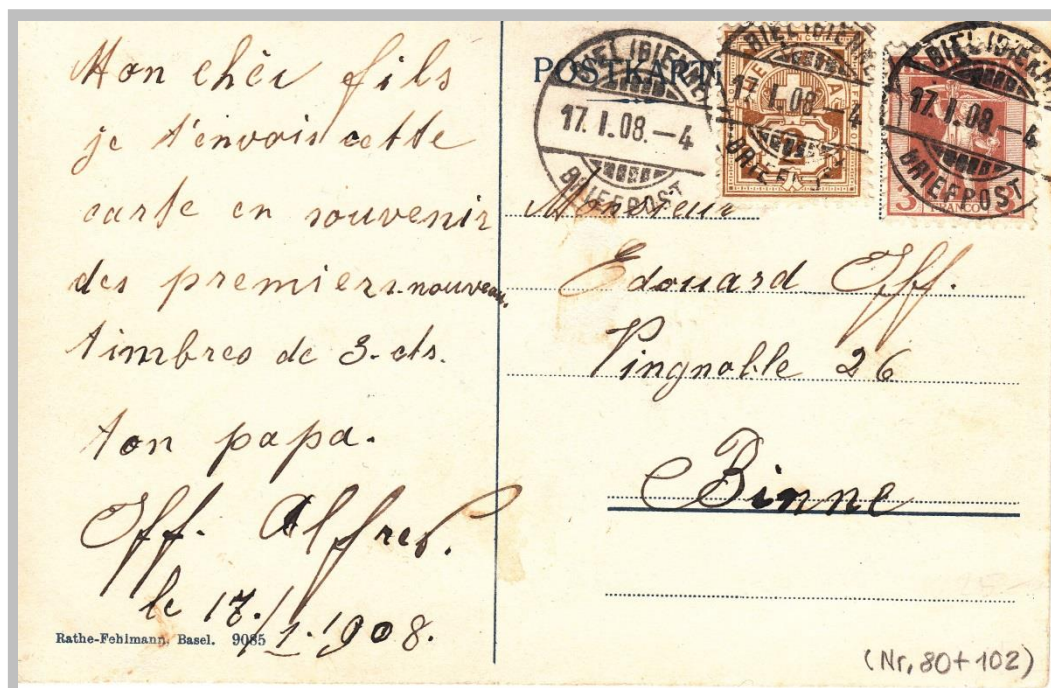 Mon chèr fils
je t'envois cette
carte en souvenir
des premiers nouveau.
timbres de 3. cts.
ton papa.
Iff. Alfred.
le 17./1. 1908.
Rathe-Fehlmann, Basel. 9085
POSTKARTE
BIEL (BIENNE)
17. I. 08. – 4
BRIEFPOST
2
BIEL (BIENNE)
17. I. 08. – 4
BRIEFPOST
BIEL (BIENNE)
17. I. 08. – 4
BRIEFPOST
3
FRANCO
Monsieur
Edouard Iff.
Vingnoble 26
Binne
(Nr. 80 + 102)